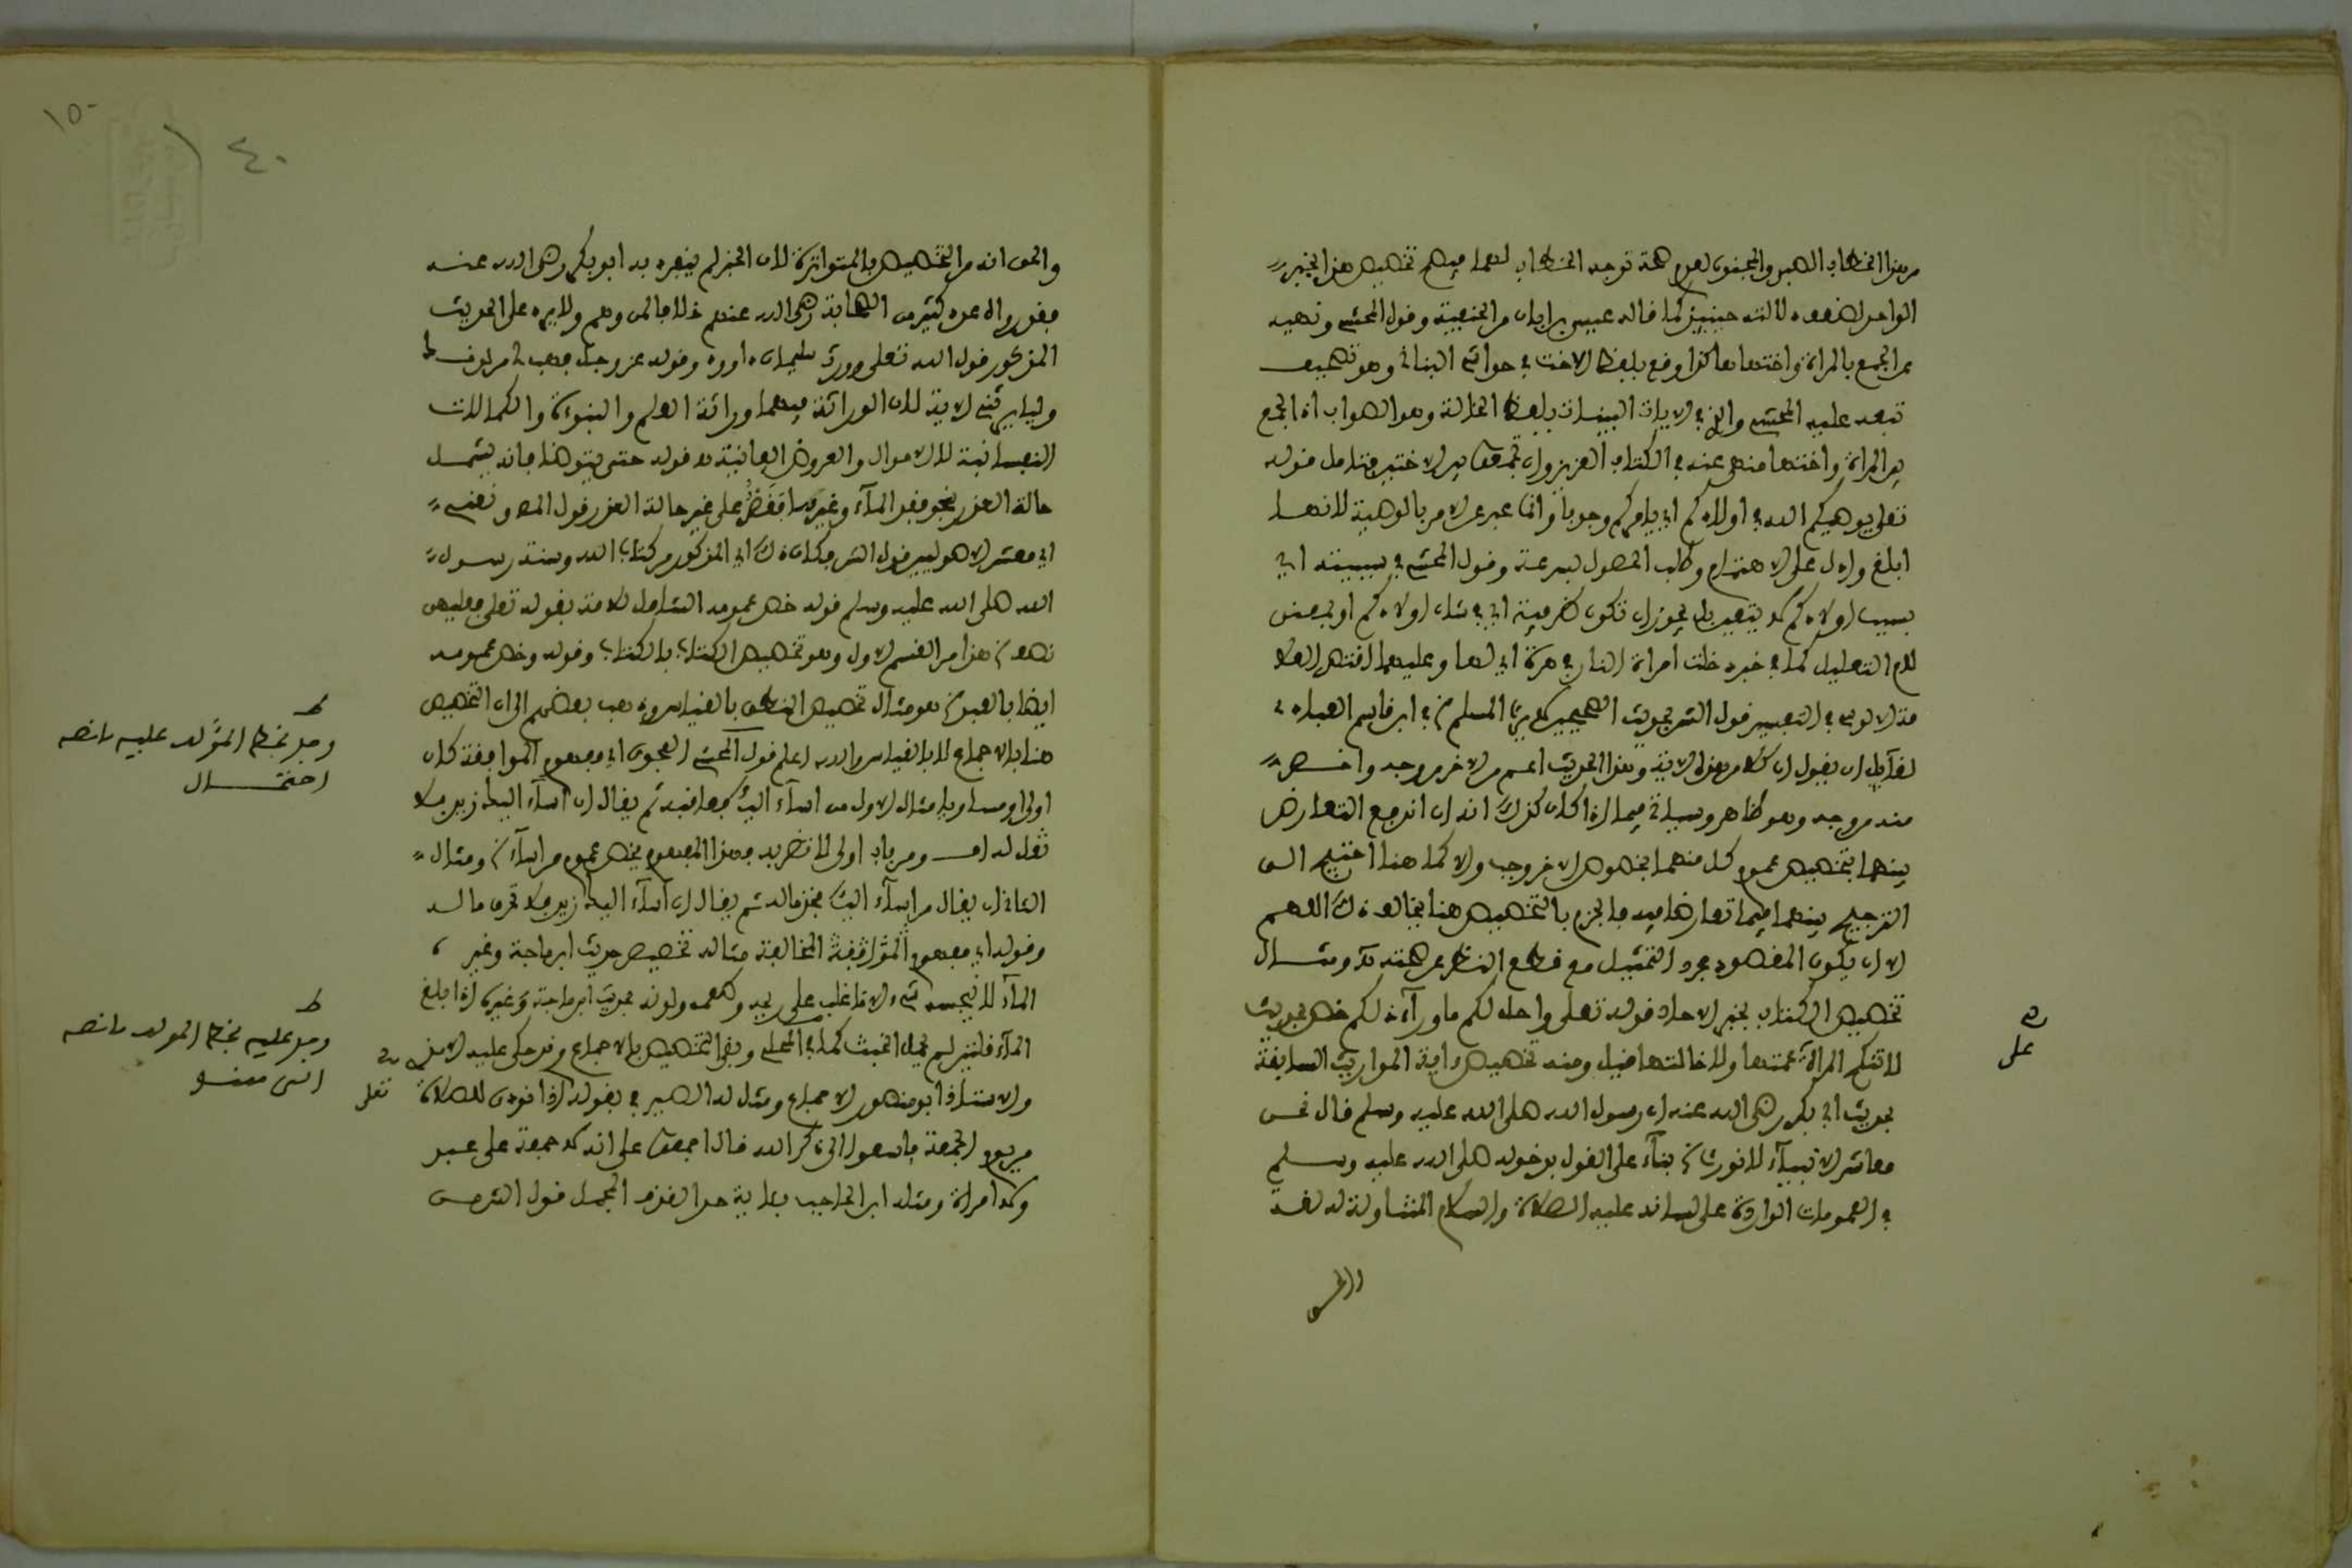 من هذا الخطاب الصبي والمجنون لعدم صحة توجه الخطاب لهما فيهم تخصيص هذا بخبر
الواحد لضعف دلالته حينئذ كما قاله عيسى بن ابان من الحنفية وقول المحشي ونهيه
عن الجمع بالمراة واختها هكذا وقع بلفظ الاخت في حواشي البناني وهو تصحيف
تبعه عليه المحشي والذي في الايات البينات بلفظ الخالة وهو الصواب اذ الجمع
بين المراة واختها منهي عنه في الكتاب العزيز وان تجمعوا بين الاختين فتامل قوله
تعلى يوصيكم الله في اولادكم اي يامركم وجوبا وانما عبر عن الامر بالوصية لانها
ابلغ وادل على الاهتمام وطلب الحصول بسرعة وقول المحشي في سببية اي
بسبب اولادكم لا يتعين بل يجوز ان تكون ظرفية اي في شان اولادكم او بمعنى
لام التعليل كما في خبر دخلت امراة النار في هرة اي لها وعليهما اقتصر العلا
مة الالوسي في التفسير قول الش بحديث الصحيحين لا يرث المسلم ن ابن قاسم العبادي
لقآيل ان يقول ان كلا من هذه الاية وهذا الحديث اعم من الاخر من وجه واخص
منه من وجه وهو ظاهر وسياتي فيما اذا كان كذلك انه ان اندفع التعارض
بينهما بتخصيص عموم كل منهما بخصوص الاخر وجب والا كما هنا احتيج الى
الترجيح بينهما فيما تعارضا فيه فالجزم بالتخصيص هنا يخالف ذلك اللهم
الا ان يكون المقصود مجرد التمثيل مع قطع النظر عن صحته ن ومثال
تخصيص الكتاب بخبر الاحاد قوله تعلى واحل لكم ما ورآء ذلكم خص بحديث
لا تنكح المراة على عمتها ولا خالتها قيل ومنه تخصيص اية المواريث السابقة
بحديث ابي بكر رضي الله عنه ان رسول الله صلى الله عليه وسلم قال نحن
معاشر الانبيآء لا نورث ن بنآء على القول بدخوله صلى الله عليه وسلم
في العمومات الواردة على لسانه عليه الصلاة والسلام المتناولة له لغة
والحق
صح
على
والحق انه من التخصيص بالمتواترة لان الخبر لم ينفرد به ابو بكر رضي الله عنه
فقد رواه عدد كثير من الصحابة رضي الله عنهم خلافا لمن وهم ولا يرد على الحديث
المذكور قول الله تعلى وورث سليمان داوود وقوله عز وجل فهب لي من لدنك
وليا يرثني الاية لان الوراثة فيهما وراثة العلم والنبوءة والكمالات
النفسانية لا الاموال والعروض الفانية قوله حتى يتوضا فانه يشمل
حالة العذر بنحو فقد المآء وغيره على غير حالة العذر قول المص ونعني
اي معشر الاصوليين قول الش وكان ذلك اي المذكور من كتاب الله وسنة رسول
الله صلى الله عليه وسلم قوله خص عمومه الشامل للامة بقوله تعلى فعليهن
نصف ن هذا من القسم الاول وهو تخصيص الكتاب بالكتاب وقوله وخص عمومه
ايضا بالعبد ن هو مثال تخصيص النص بالقياس وذهب بعضهم الى ان التخصيص
هنا بالاجماع لا بالقياس والله اعلم قول المحشي الفحوى اي مفهوم الموافقة كان
اولى او مساويا مثال الاول من اسآء اليك فعاقبه ثم يقال ان اسآء اليك زيد فلا
تقل له اف ومن باب اولى لا تضربه فهذا المفهوم يخص عموم من اسآء ن ومثال
الثاني ان يقال من اسآء اليك فخذ ماله ثم يقال ان اسآء اليك زيد فلا تحرق ماله
وقوله اي مفهوم المخالفة مثاله تخصيص حديث ابن ماجة وغيره
المآء لا ينجسه شيء الا ما غلب على ريحه وطعمه ولونه بحديث ابن ماجة وغيره اذا بلغ
المآء قلتين لم يحمل الخبث كما في المحلي وبقي التخصيص بالاجماع وقد حكى عليه الامدي
والاستاذ ابو منصور الاجماع ومثل له الصيرفي بقوله تعلى صح اذا نودي للصلاة
من يوم الجمعة فاسعوا الى ذكر الله قال اجمعوا على انه لا جمعة على عبد
ولا امراة ومثله ابن الحاجب باية حد القذف المجمل قول الش من
ط
وجد بخط المؤلف عليه ما نصه
احتمال
ط
وجد عليه بخط المولف ما نصه
انتهى منه
١٥٠
٤٠